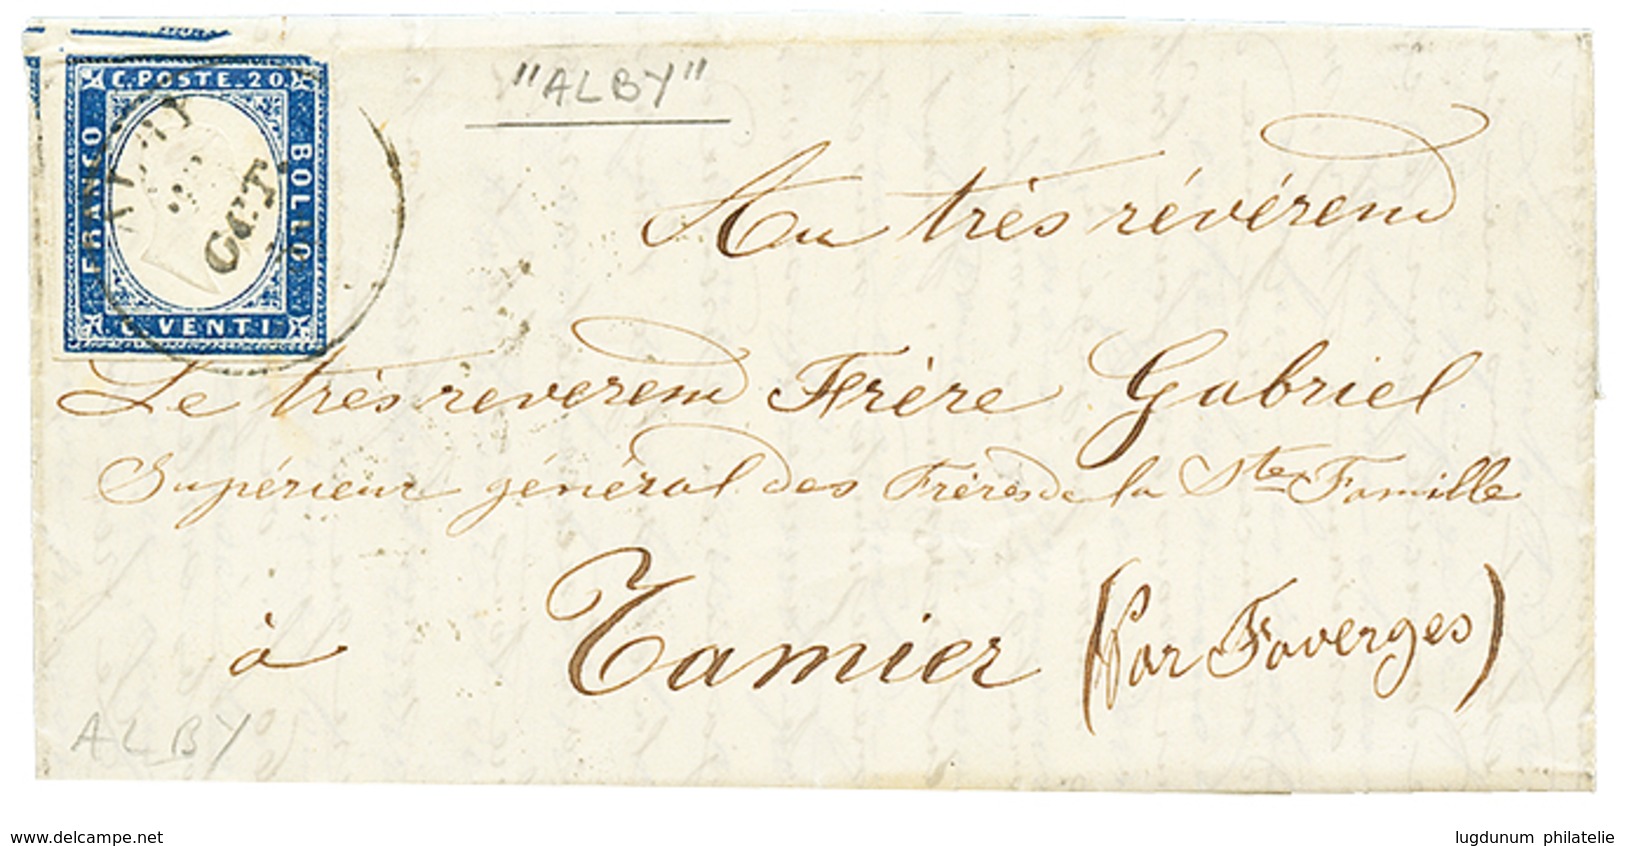 C. POSTE. 20
FRANCO
BOLLO
C. VENTI
ALBY
OCT.
"ALBY"
Au très révérend
Le très reverend Frère Gabriel
Supérieur général des Frères de la Ste Famille
à Tamier (Par Faverges)
ALBY
www.delcampe.net
lugdunum philatelie